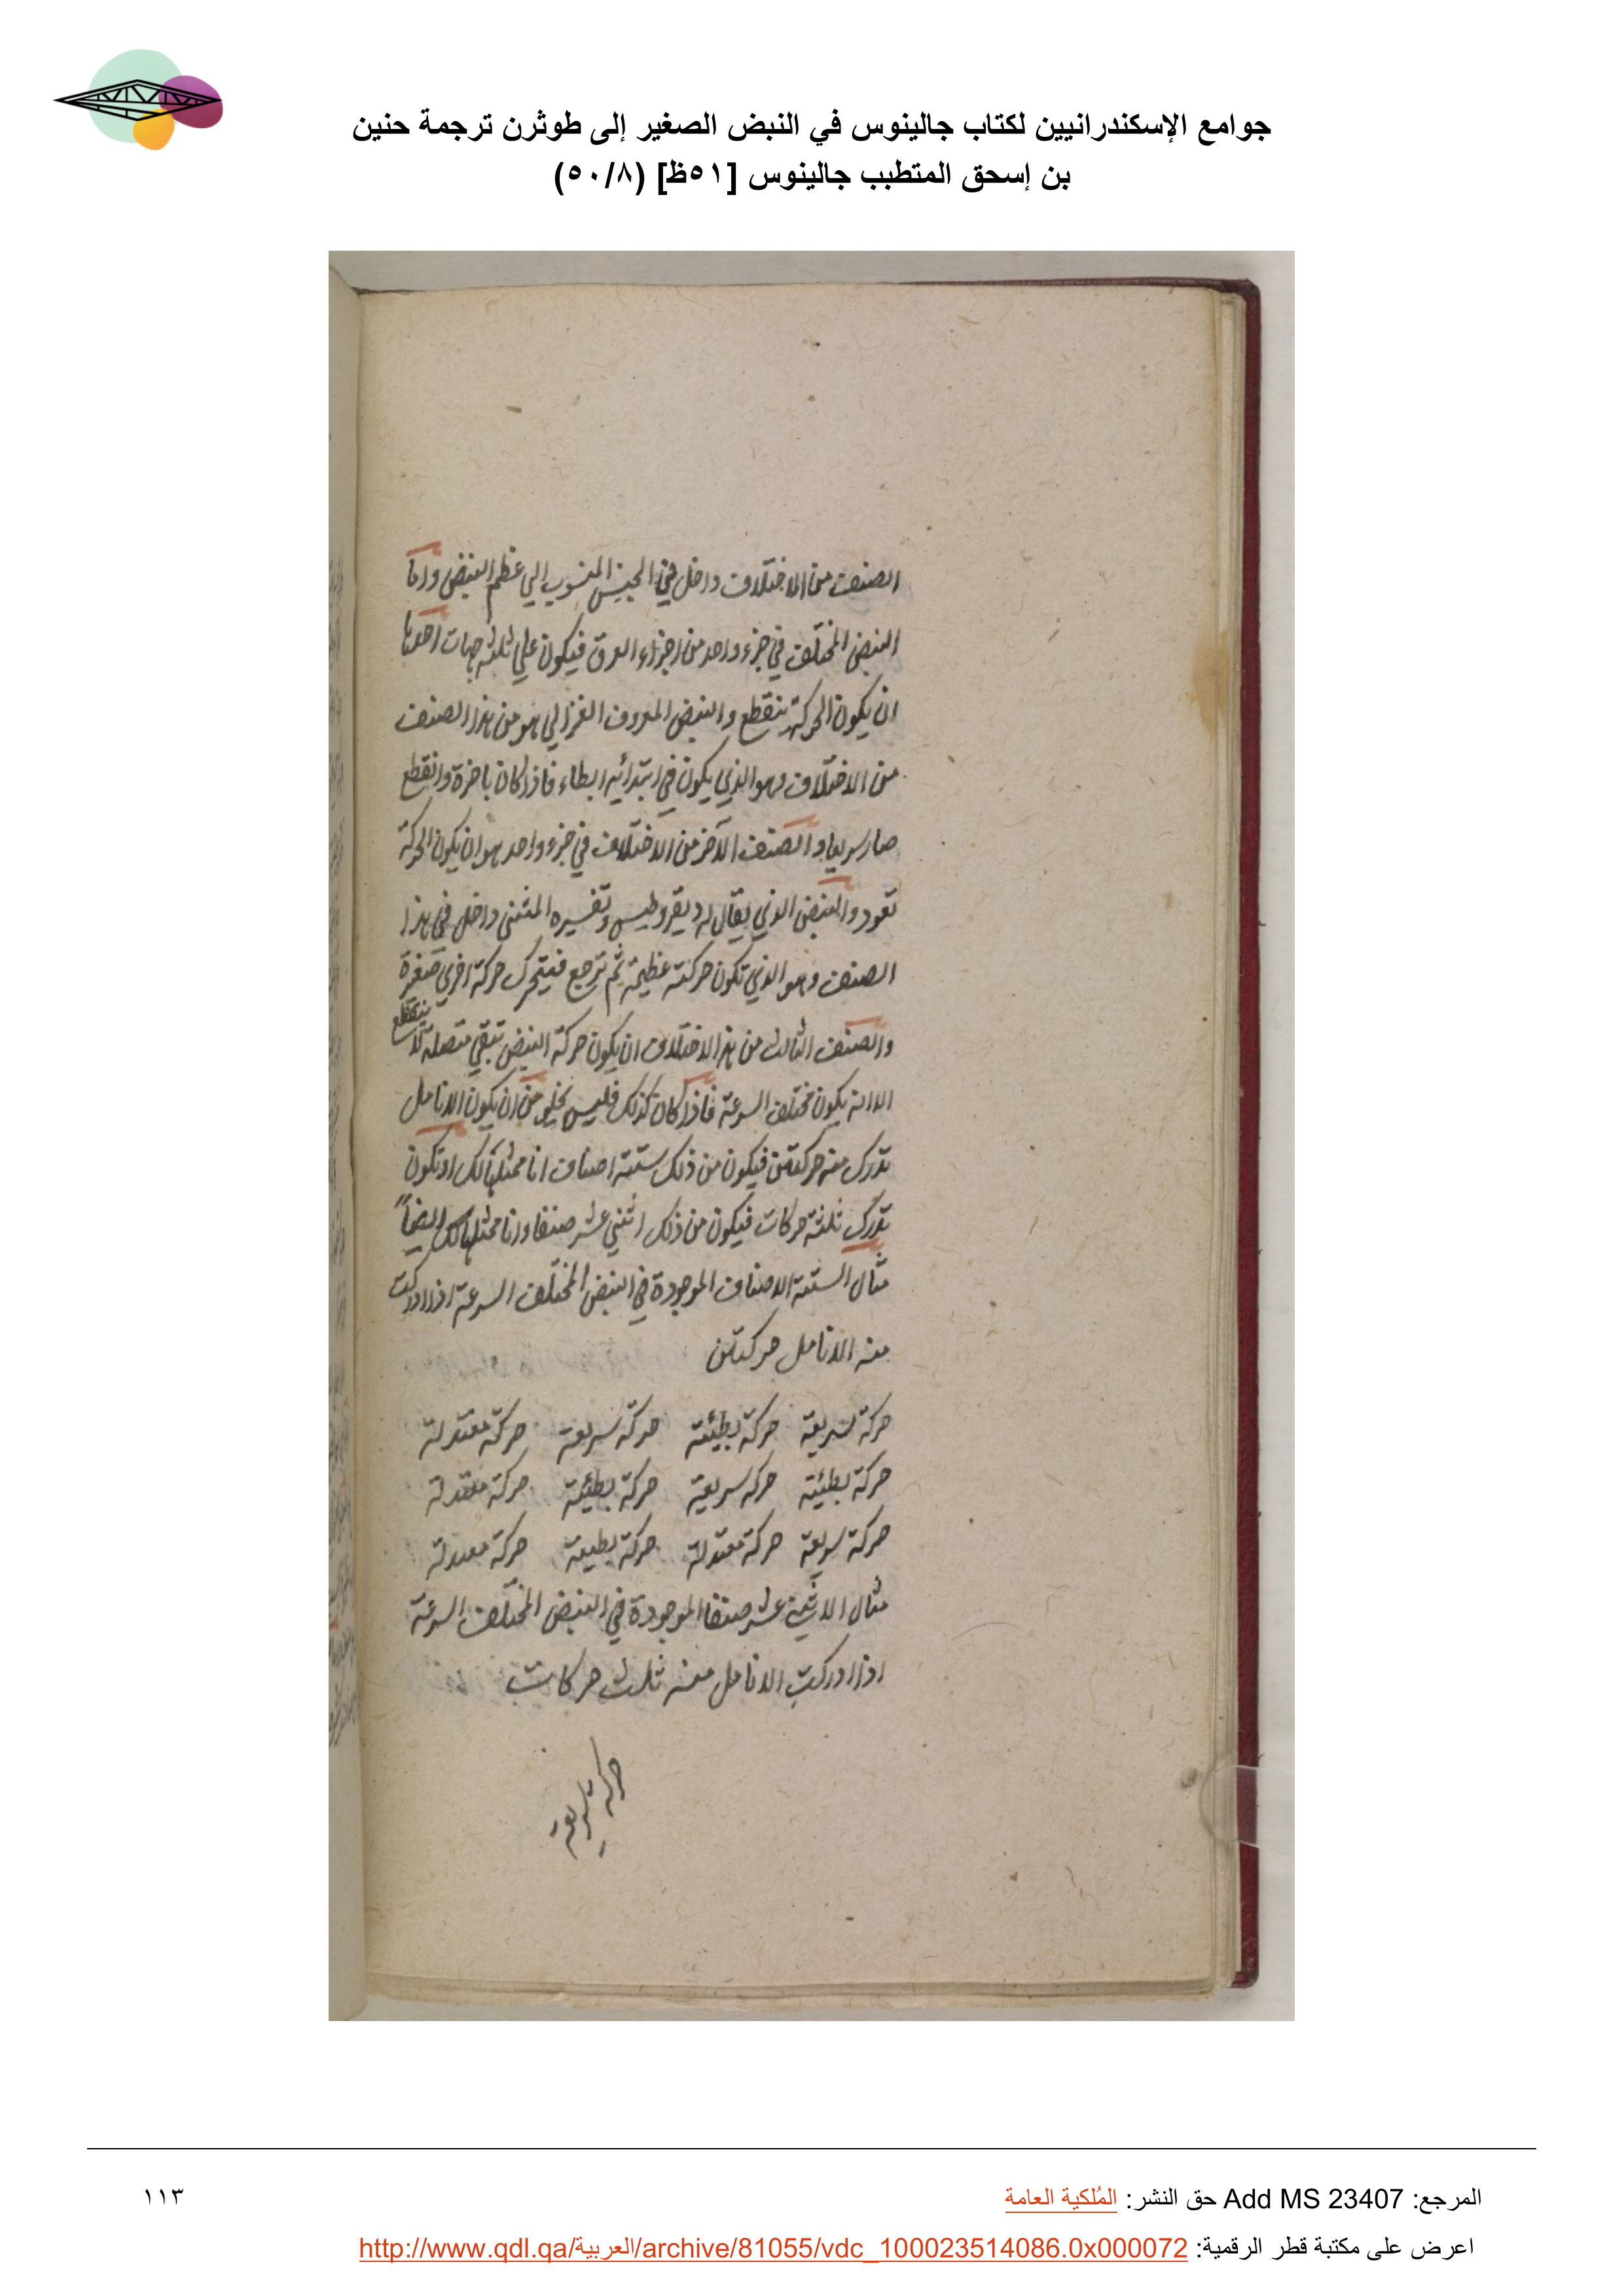 جوامع الإسكندرانيين لكتاب جالينوس في النبض الصغير إلى طوثرن ترجمة حنين
بن إسحق المتطبب جالينوس [٥١ظ] (٥٠/٨)
الصنف من الاختلاف داخل في الجنس المنسوب الي عظم النبض واما
النبض المختلف في جزء واحد من اجزاء العرق فيكون علي ثلثة جهات احدها
ان يكون الحركة ينقطع والنبض المعروف الغزالي هو من هذا الصنف
من الاختلاف وهو الذي يكون في ابتدائه ابطاء فاذا كان باخرة وانقطع
صار سريعا والصنف الآخر من الاختلاف في جزء واحد هو ان يكون الحركة
تعود والنبض الذي يقال له ديقروطيس وتفسيره المثنى داخل في هذا
الصنف وهو الذي تكون حركته عظيمة ثم ترجع فيتحرك حركة اخري صغيرة
والصنف الثالث من هذا الاختلاف ان يكون حركة النبض تبقي متصلة لا ينقطع
الا انه يكون مختلف السرعة فاذا كان كذلك فليس يخلو من ان يكون الانامل
تدرك منه حركتين فيكون من ذلك ستة اصناف انا ممثلها لك او تكون
تدرك ثلثة حركات فيكون من ذلك اثني عشر صنفا وانا ممثلها لك ايضاً
مثال الستة الاصناف الموجودة في النبض المختلف السرعة اذا ادركت
منه الانامل حركتين
حركة سريعة حركة بطيئة حركة سريعة حركة معتدلة
حركة بطيئة حركة سريعة حركة بطيئة حركة معتدلة
حركة سريعة حركة معتدلة حركة بطيعة حركة معتدلة
مثال الاثني عشر صنفا الموجودة في النبض المختلف السرعة
اذا ادركت الانامل منه ثلث حركات
حركة سريعة
المرجع: Add MS 23407 حق النشر: المُلكية العامة
١١٣
اعرض على مكتبة قطر الرقمية: http://www.qdl.qa/العربية/archive/81055/vdc_100023514086.0x000072